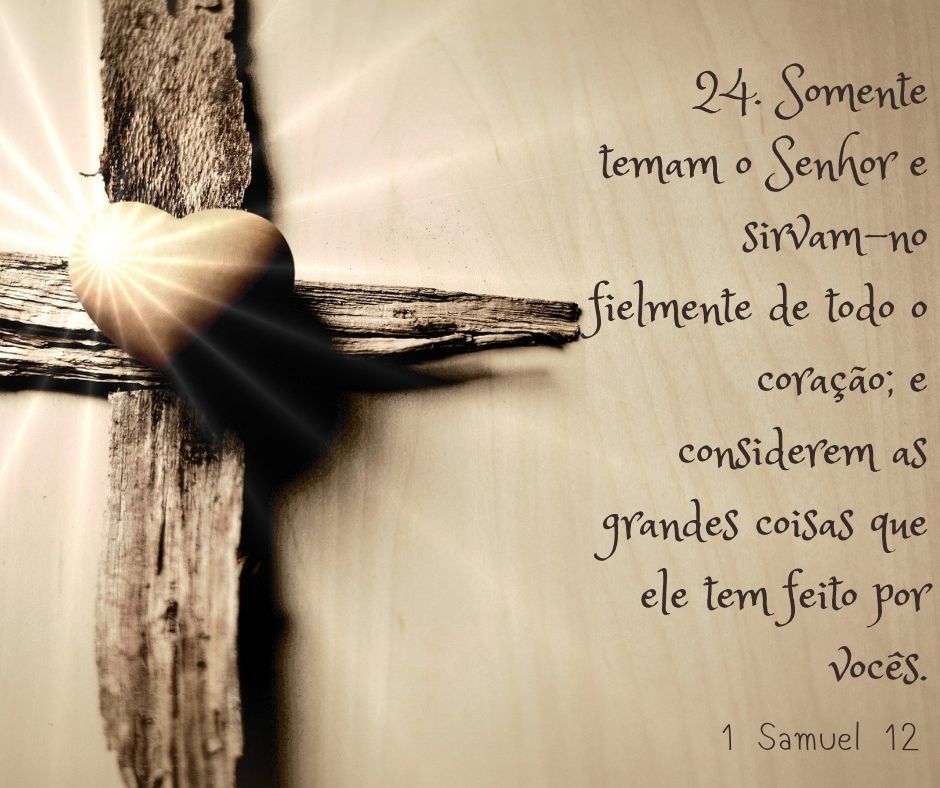 24. Somente
temam o Senhor e
sirvam-no
fielmente de todo o
coração; e
considerem as
grandes coisas que
ele tem feito por
vocês.
1 Samuel 12